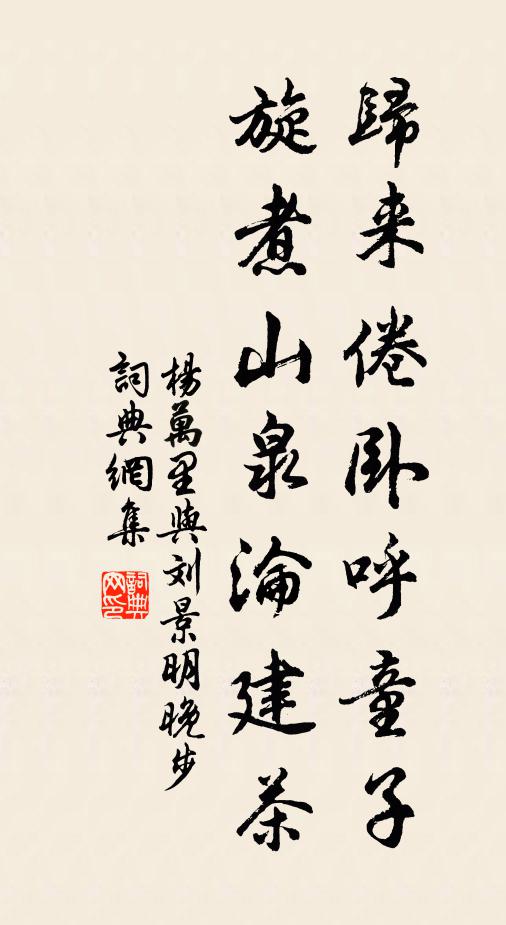 歸来倦卧呼童子
旋煮山泉淪建茶
楊萬里與刘景明晚步
詞典網集
詞典网印